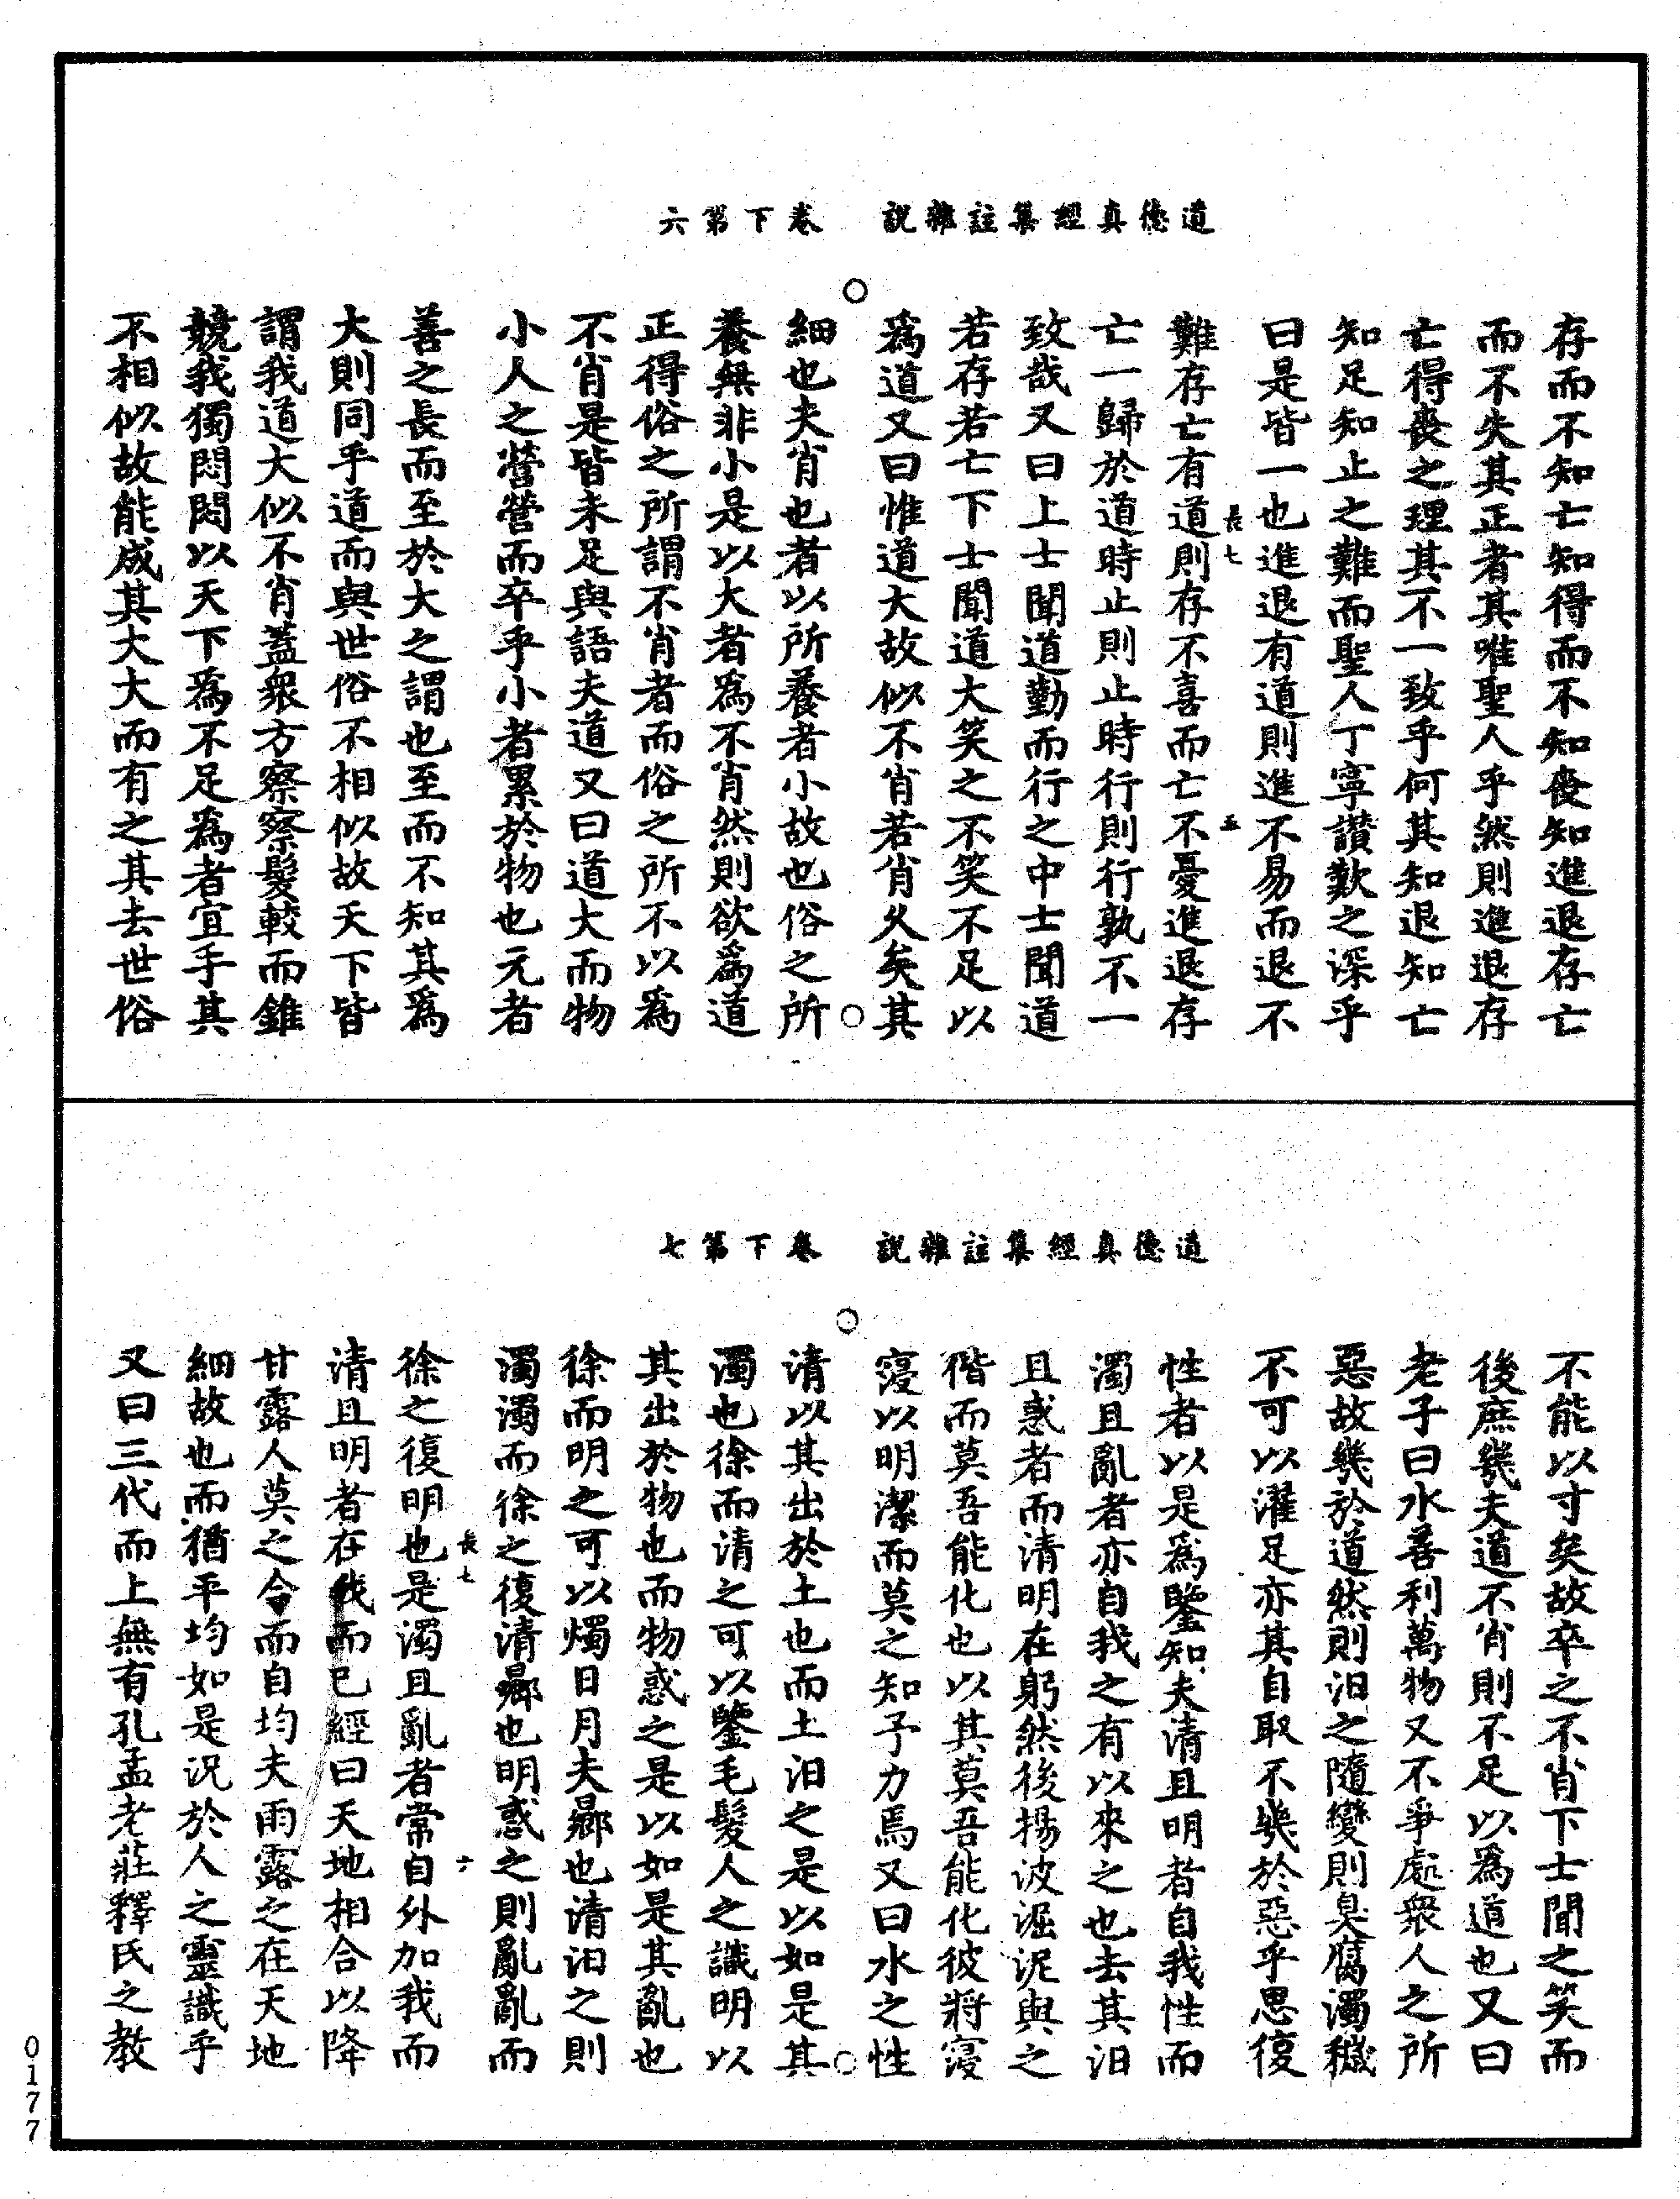 道德真經集註雜說　卷下第六
存而不知亡知得而不知喪知進退存亡
而不失其正者其唯聖人乎然則進退存
亡得喪之理其不一致乎何其知退知亡
知足知止之難而聖人丁寧讚歎之深乎
曰是皆一也進退有道則進不易而退不
長七
五
難存亡有道則存不喜而亡不憂進退存
亡一歸於道時止則止時行則行孰不一
致哉又曰上士聞道勤而行之中士聞道
若存若亡下士聞道大笑之不笑不足以
為道又曰惟道大故似不肖若肖久矣其
細也夫肖也者以所養者小故也俗之所
養無非小是以大者為不肖然則欲為道
正得俗之所謂不肖者而俗之所不以為
不肖是皆未足與語夫道又曰道大而物
小人之營營而卒乎小者累於物也元者
善之長而至於大之謂也至而不知其為
大則同乎道而與世俗不相似故天下皆
謂我道大似不肖蓋眾方察察髮較而錐
競我獨悶悶以天下為不足為者宜乎其
不相似故能成其大大而有之其去世俗
道德真經集註雜說　卷下第七
不能以寸矣故卒之不肖下士聞之笑而
後庶幾夫道不肖則不足以為道也又曰
老子曰水善利萬物又不爭處眾人之所
惡故幾於道然則汨之隨變則臭腐濁穢
不可以濯足亦其自取不幾於惡乎思復
性者以是為鑒知夫清且明者自我性而
濁且亂者亦自我之有以來之也去其汨
且惑者而清明在躬然後揚波淈泥與之
偕而莫吾能化也以其莫吾能化彼將寖
寖以明潔而莫之知予力焉又曰水之性
清以其出於土也而土汨之是以如是其
濁也徐而清之可以鑒毛髮人之識明以
其出於物也而物惑之是以如是其亂也
徐而明之可以燭日月夫曏也清汨之則
濁濁而徐之復清曏也明惑之則亂亂而
長七
六
徐之復明也是濁且亂者常自外加我而
清且明者在我而已經曰天地相合以降
甘露人莫之令而自均夫雨露之在天地
細故也而猶平均如是況於人之靈識乎
又曰三代而上無有孔孟老莊釋氏之教
0177